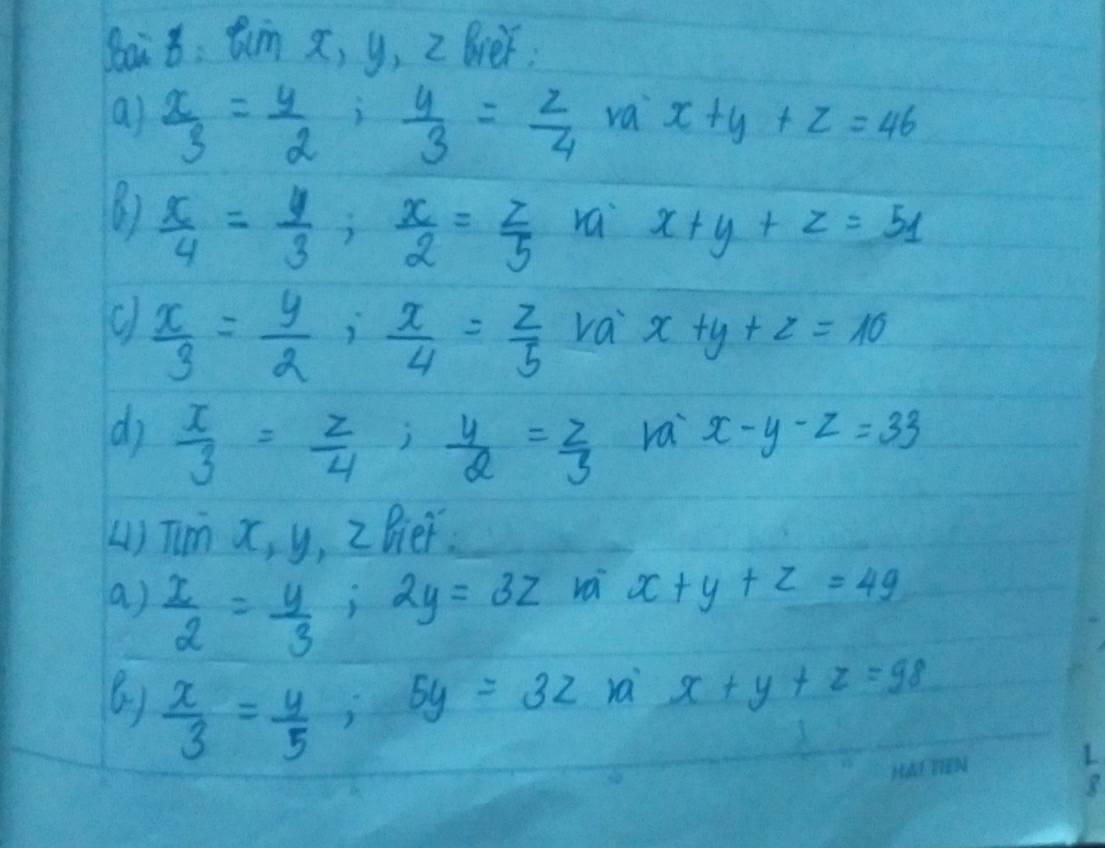 Bài 3: Tìm x, y, z biết:
a) x/3 = y/2 ; y/3 = z/4 và x + y + z = 46
b) x/4 = y/3 ; x/2 = z/5 và x + y + z = 51
c) x/3 = y/2 ; x/4 = z/5 và x + y + z = 10
d) x/3 = z/4 ; y/2 = z/3 và x - y - z = 33
4) Tìm x, y, z biết:
a) x/2 = y/3 ; 2y = 3z và x + y + z = 49
b) x/3 = y/5 ; 5y = 3z và x + y + z = 98
HẢI TIẾN
L
8